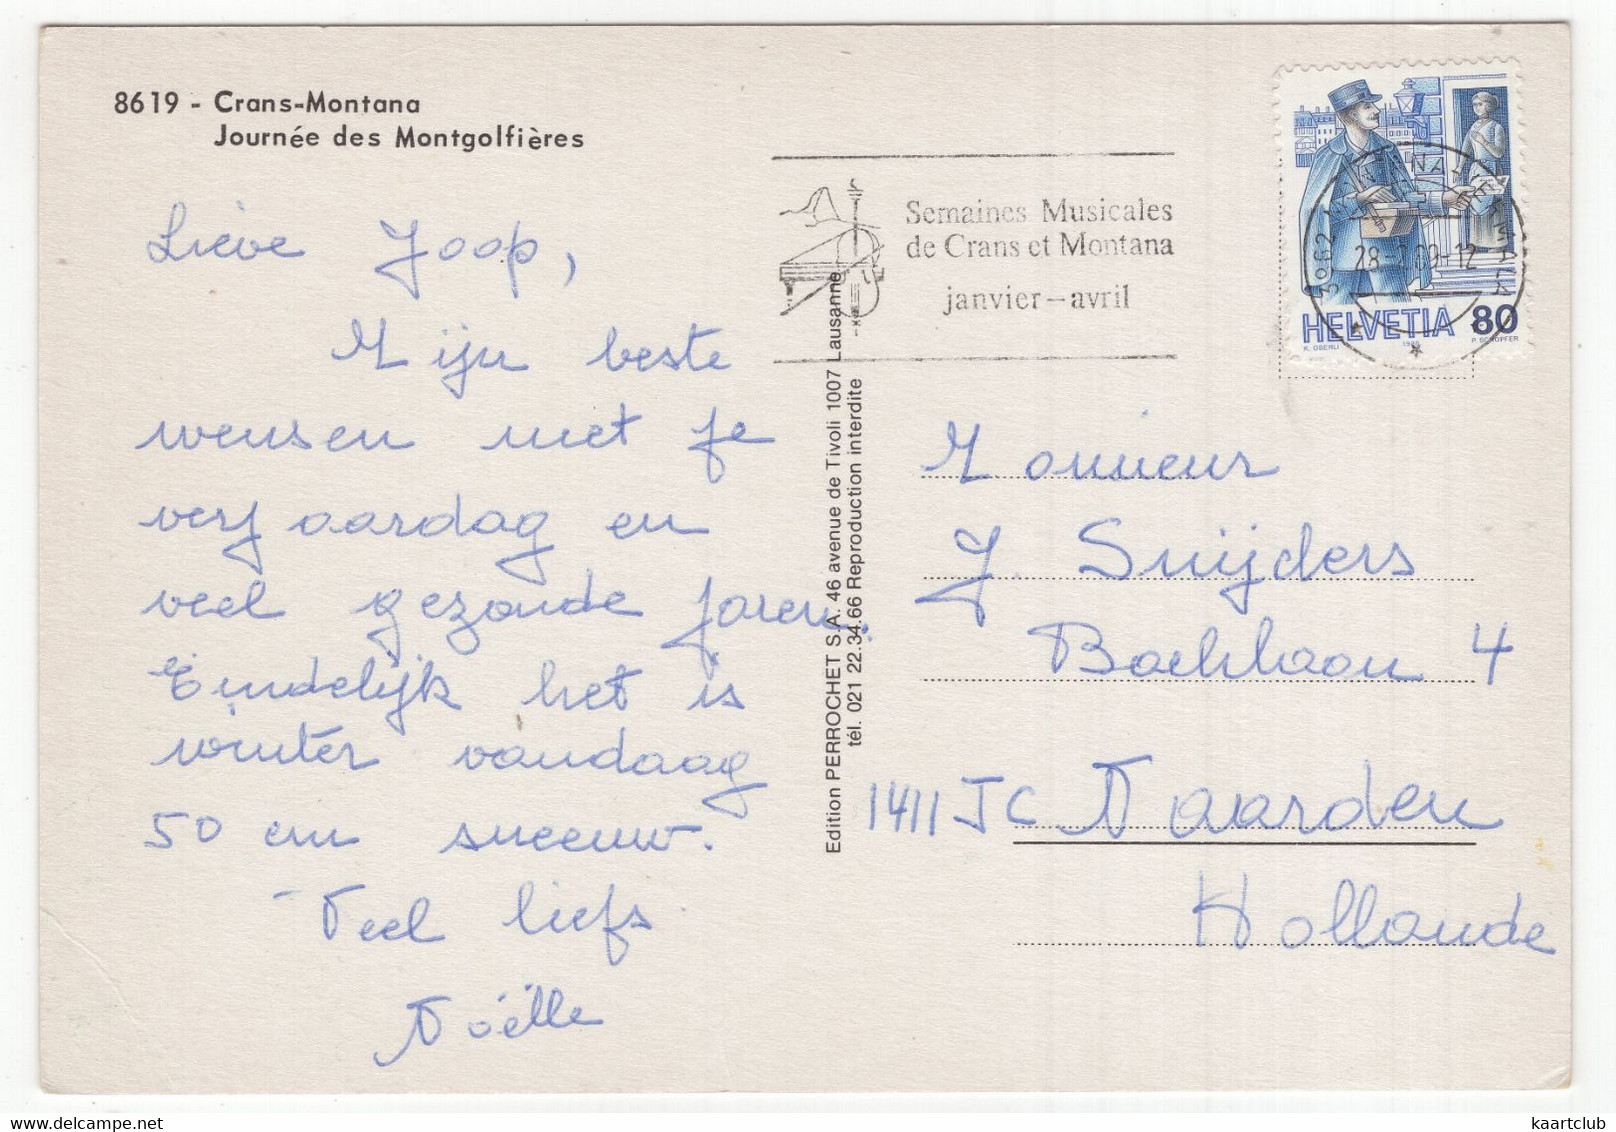 8619 - Crans-Montana
Journée des Montgolfières
Lieve Joop,
Mijn beste
wensen met je
verjaardag en
veel gezonde jaren.
Eindelijk het is
winter vandaag
50 cm sneeuw.
Veel liefs
Noëlle
Edition PERROCHET S.A. 46 avenue de Tivoli 1007 Lausanne
tél. 021 22.34.66 Reproduction interdite
Semaines Musicales
de Crans et Montana
janvier – avril
HELVETIA 80
K. OBERLI
3962
Monsieur
J. Snijders
4
1411 JC Naarden
Hollande
kaartclub